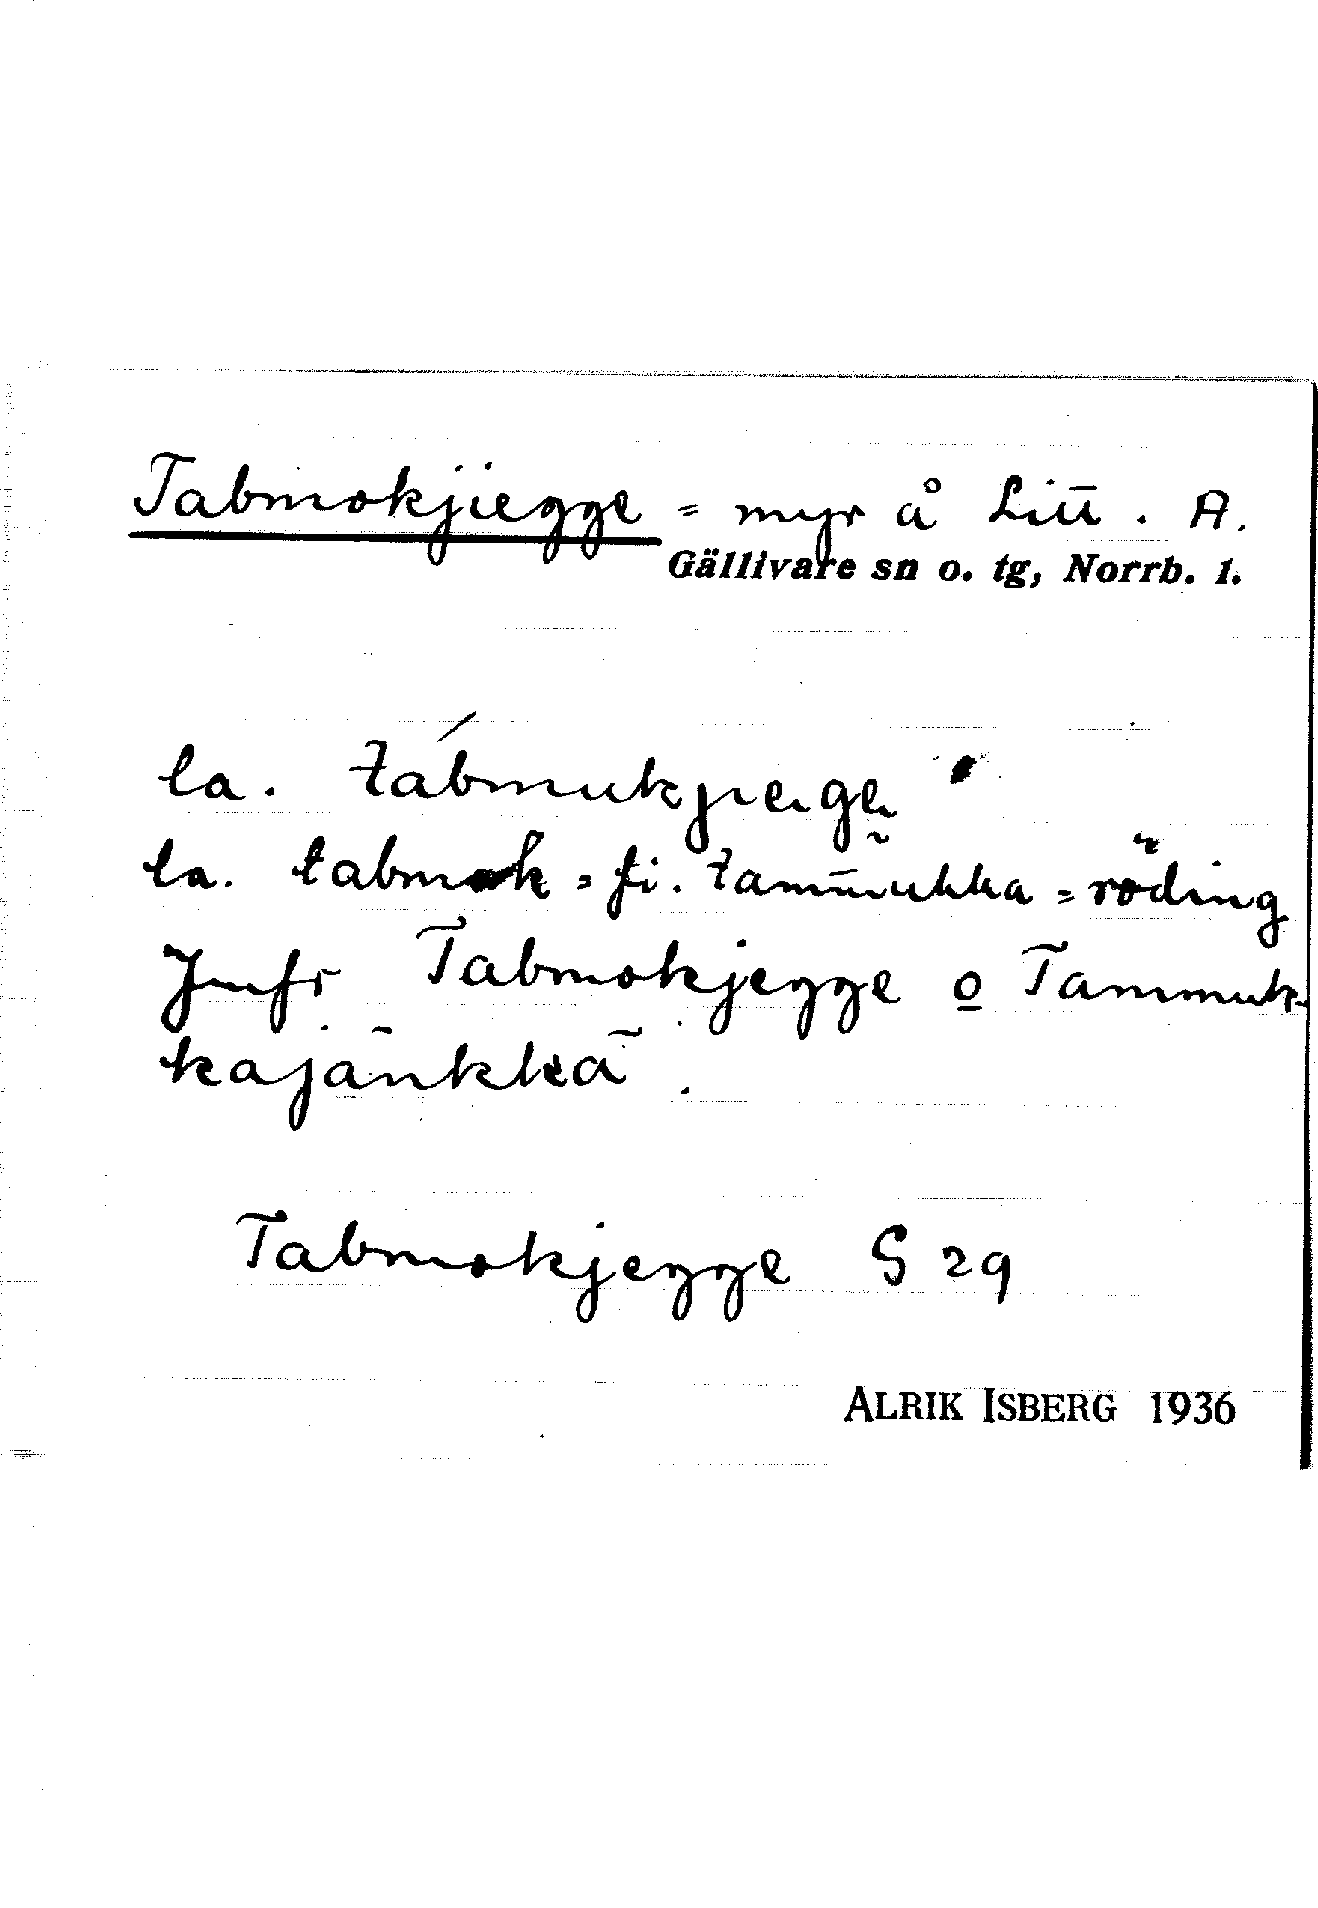 Tabmokjiegge = myr å Litt. A.
Gällivare sn o. tg, Norrb. l.
la.
la. tabmok = fi. tammukka = röding
Jmfr Tabmokjegge o Tammuk-
kajänkkä.
Tabmokjegge S 29
ALRIK ISBERG 1936